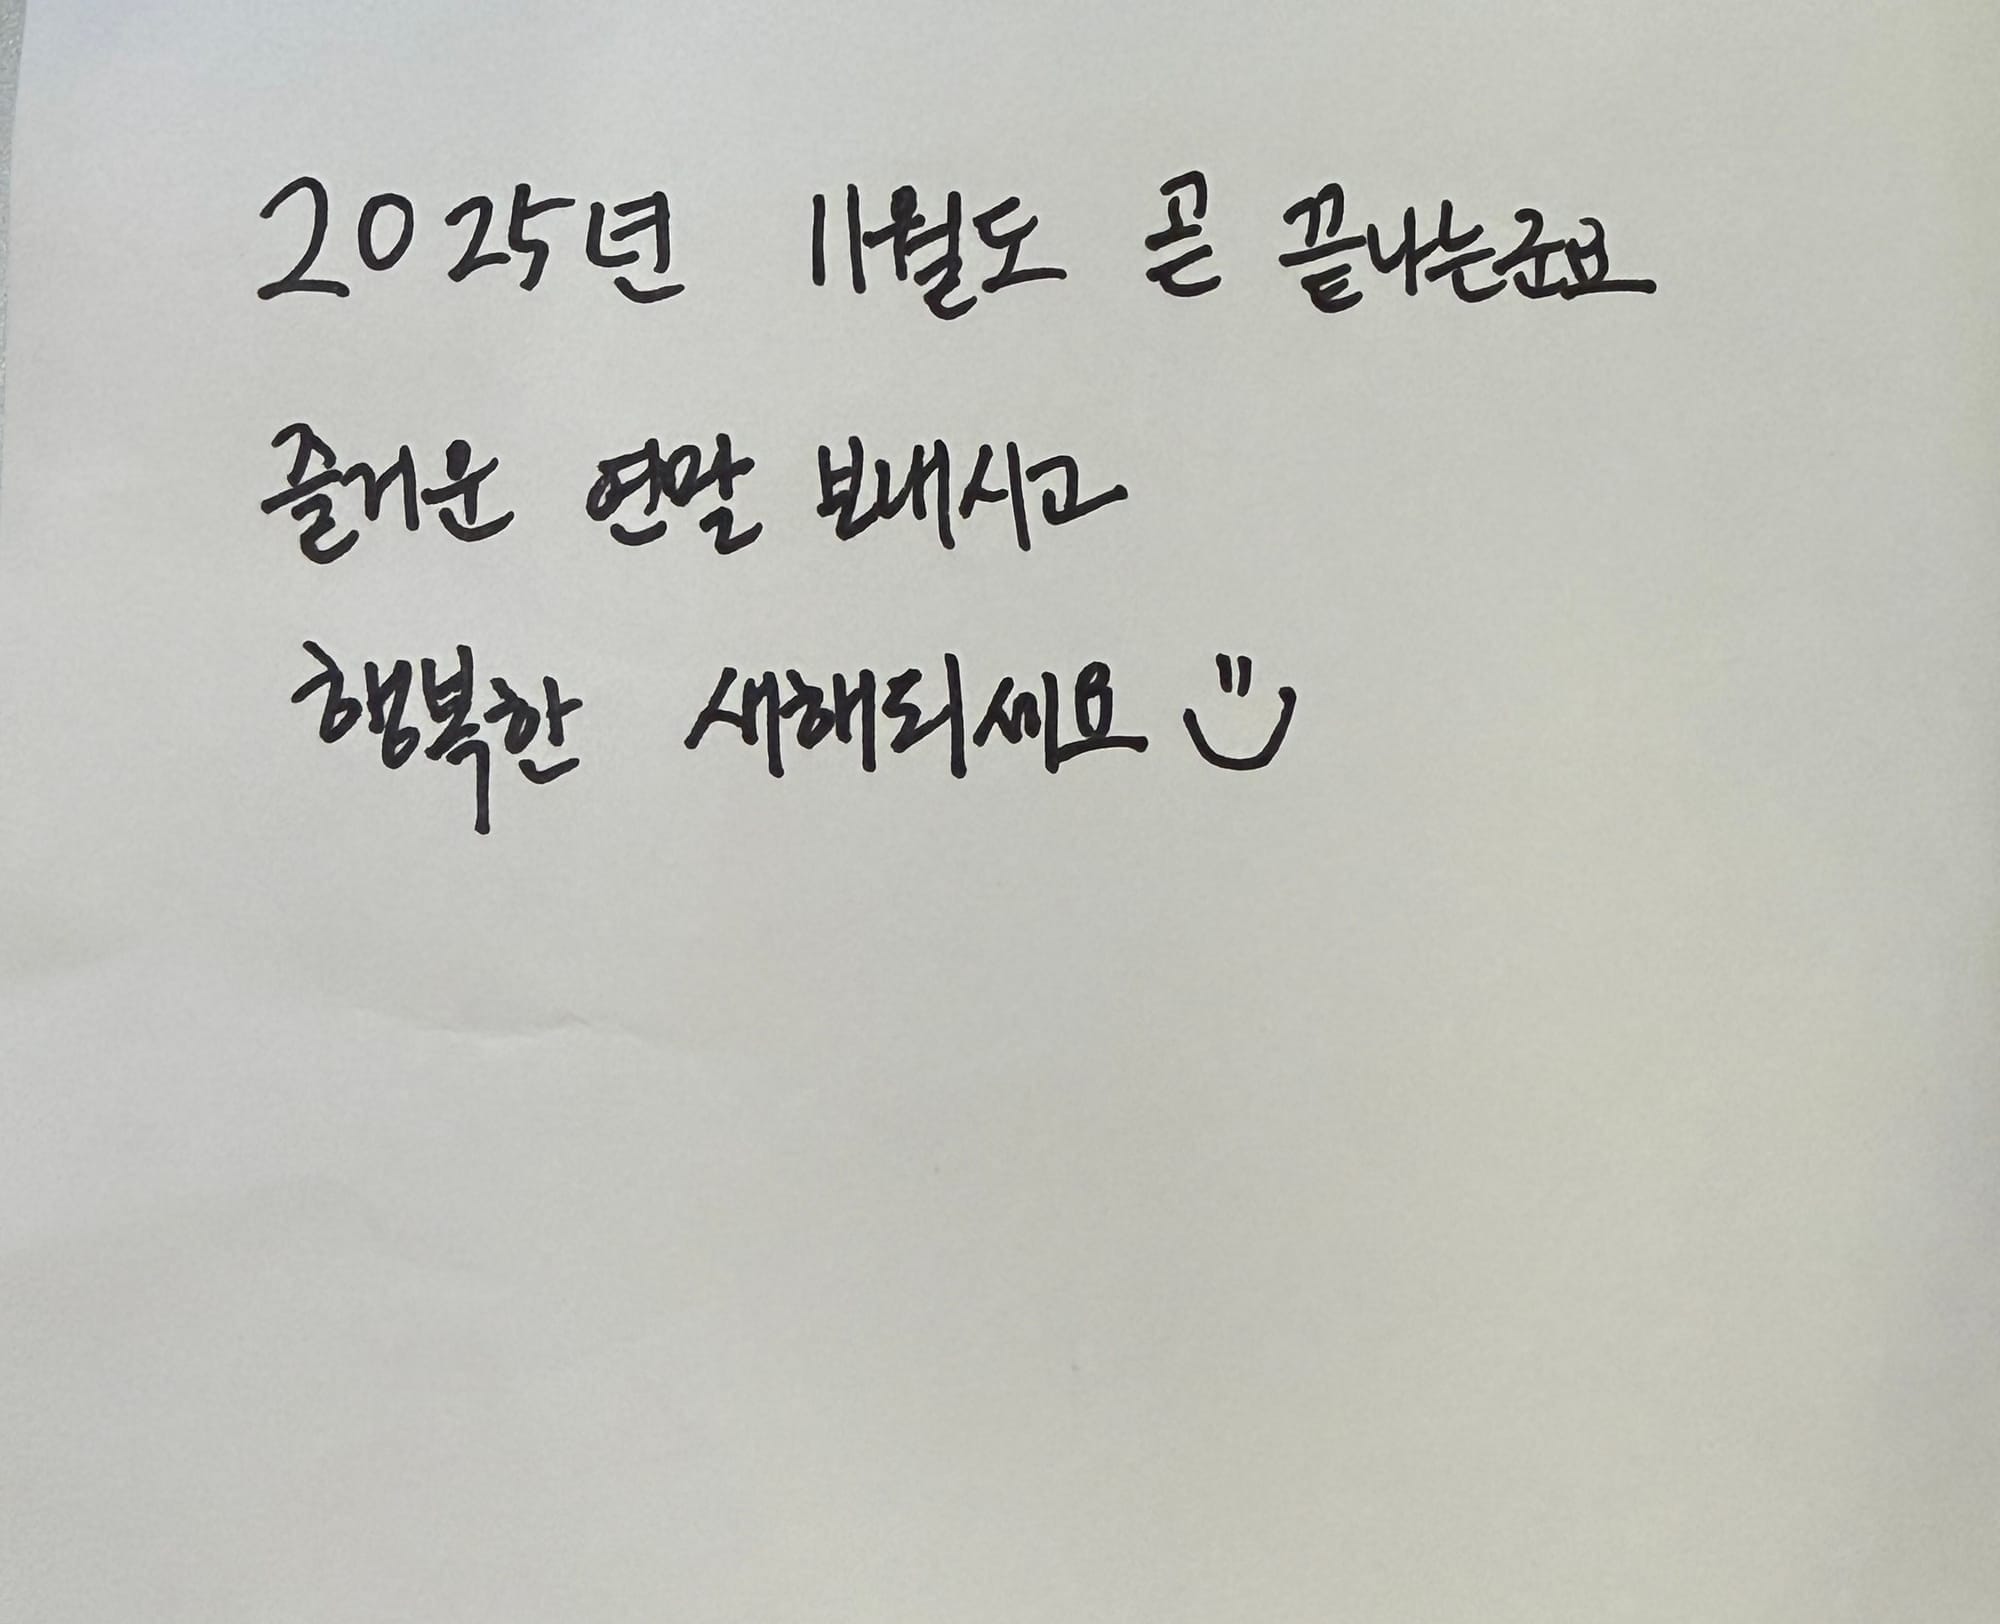 2025년 11월도 곧 끝나는군요
즐거운 연말 보내시고
행복한 새해되세요